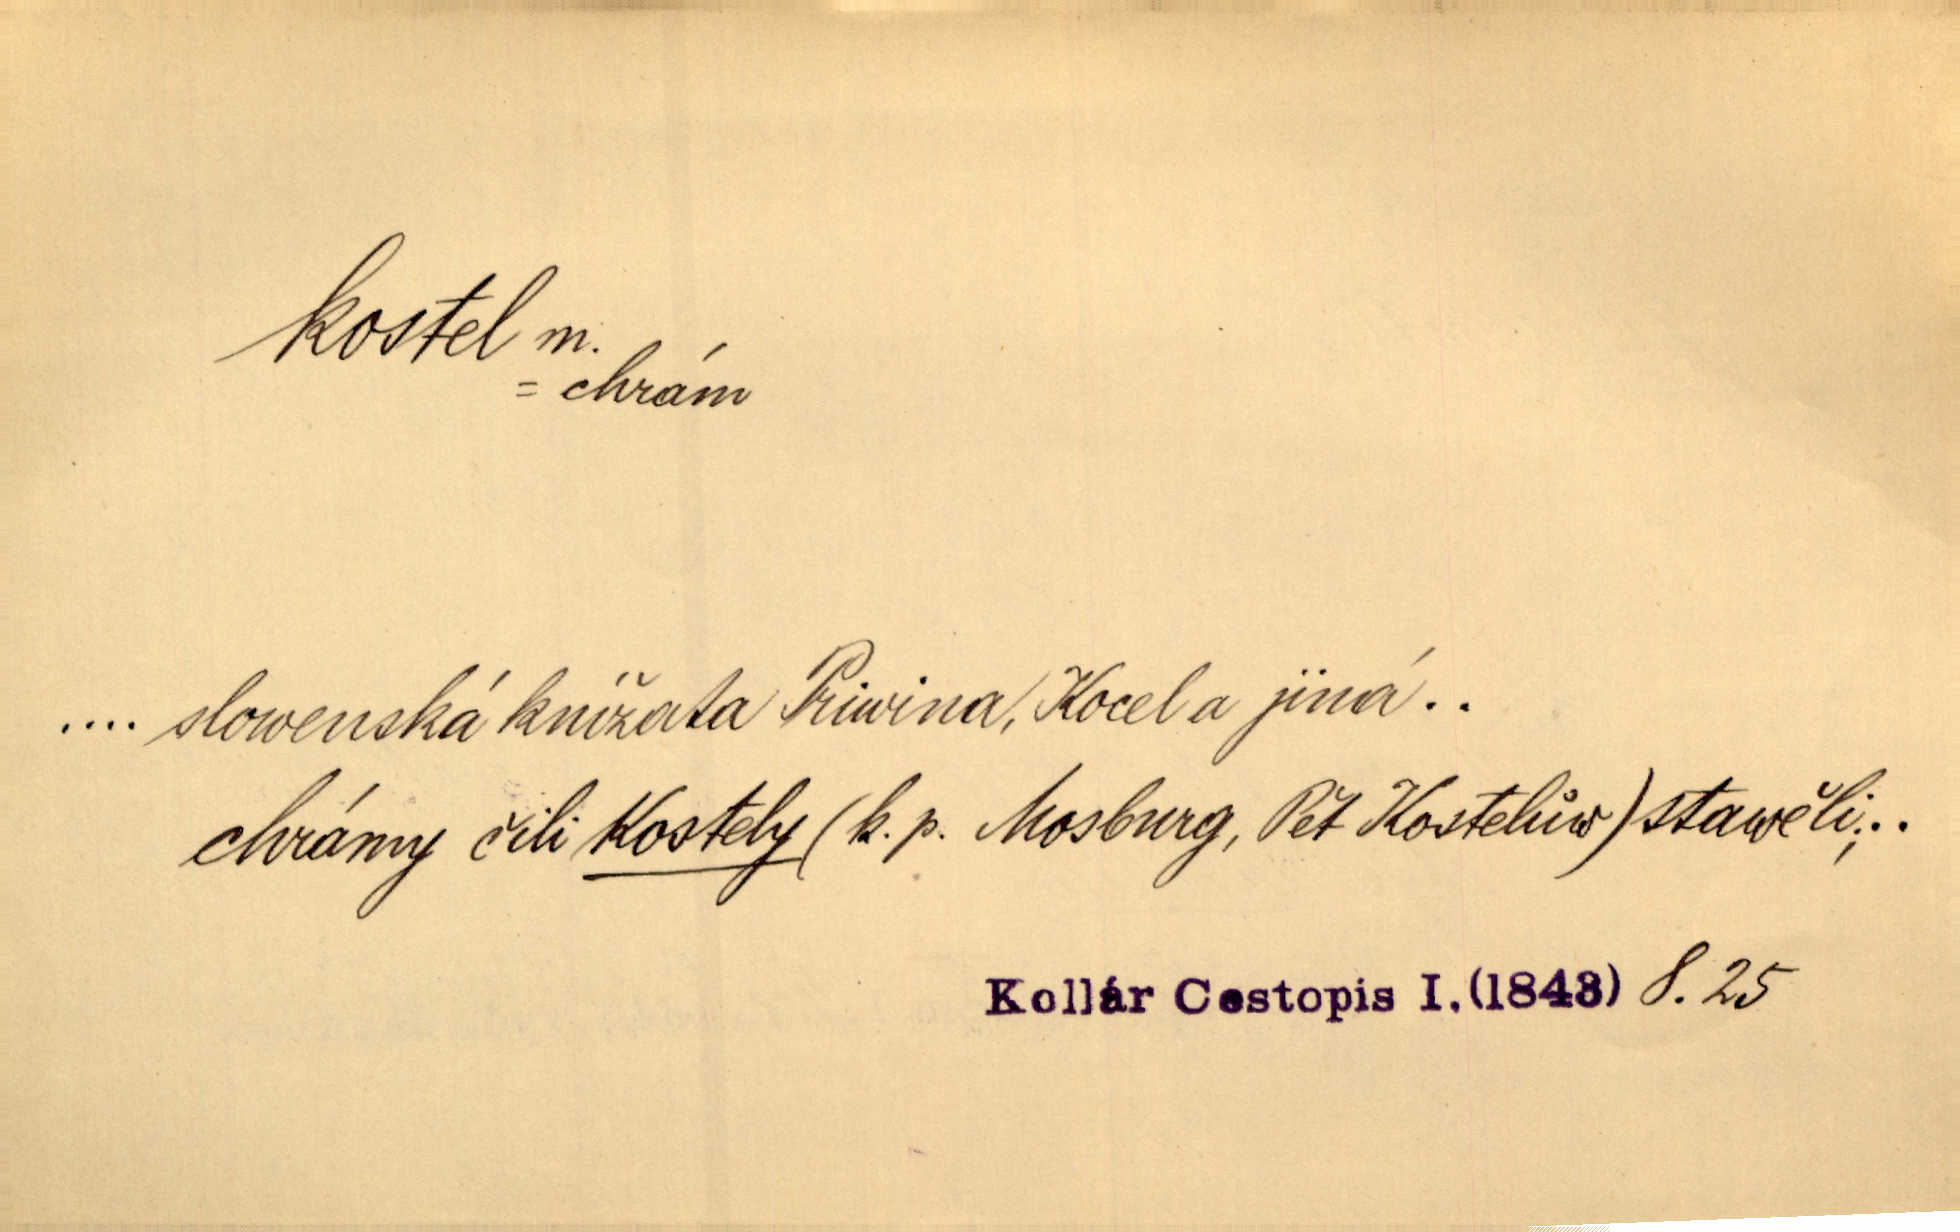 kostel m.
= chrám
.... slowenská knížata Priwina, Kocel a jiná ..
chrámy čili Kostely (k. p. Mosburg, Pět Kostelůw) stawěli;..
Kollár Cestopis I. (1843) S. 25